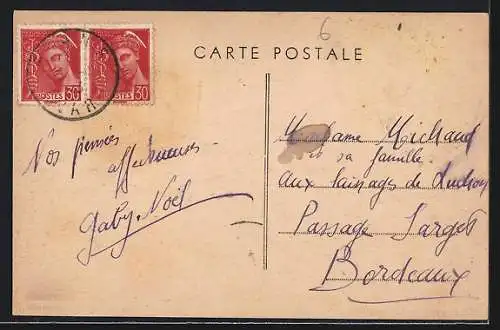 6
CARTE POSTALE
POSTES 30
POSTES 30
VAR
Nos pensées
affectueuses
Gaby. Noël
Madame Michaud
et sa famille
aux lainages de Luchon
Passage Sarget
Bordeaux